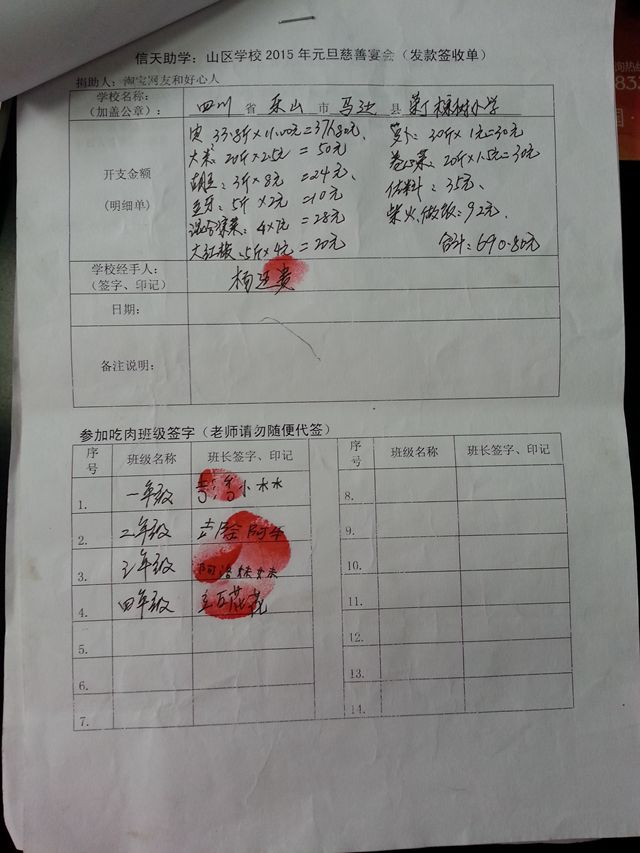 信天助学：山区学校 2015 年元旦慈善宴会（发款签收单）
捐助人：淘宝网友和好心人
学校名称：
（加盖公章）：
四川 省 乐山 市 马边 县 小学
开支金额
(明细单)
肉 33.8斤×11.00元=371.80元、
大米：20斤×2.5元 = 50元
3斤×8元 =24元、
豆芽、5斤×2元=10元
混合凉菜、4×7元=28元
大红椒、5斤×4元=20元
萝卜：30斤×1元=30元
卷心菜：20斤×1.5元=30元
佐料：35元、
柴火、做饭：92元
合计：690.80元
学校经手人：
（签字、印记）
杨廷贵
日期：
备注说明：
参加吃肉班级签字（老师请勿随便代签）
序号 班级名称 班长签字、印记 序号 班级名称 班长签字、印记
1. 一年级 小水水 8.
2. 二年级 阿牛 9.
3. 三年级 阿洛妹妹 10.
4. 四年级 花花 11.
5. 12.
6. 13.
7. 14.